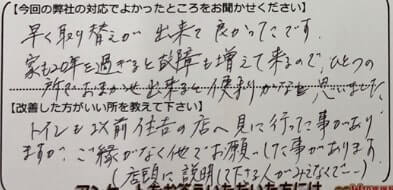 【今回の弊社の対応でよかったところをお聞かせください】
早く取り替えが出来て良かったです。
家も20年を過ぎると故障も増えて来るので、ひとつの
所でおまかせ出来ると便利かなと思いました。
【改善した方がいい所を教えて下さい】
トイレも以前住吉の店へ見に行った事があり
ますが、ご縁がなく他でお願いした事があります。
(店頭に説明して下さる人がみえなくて…)